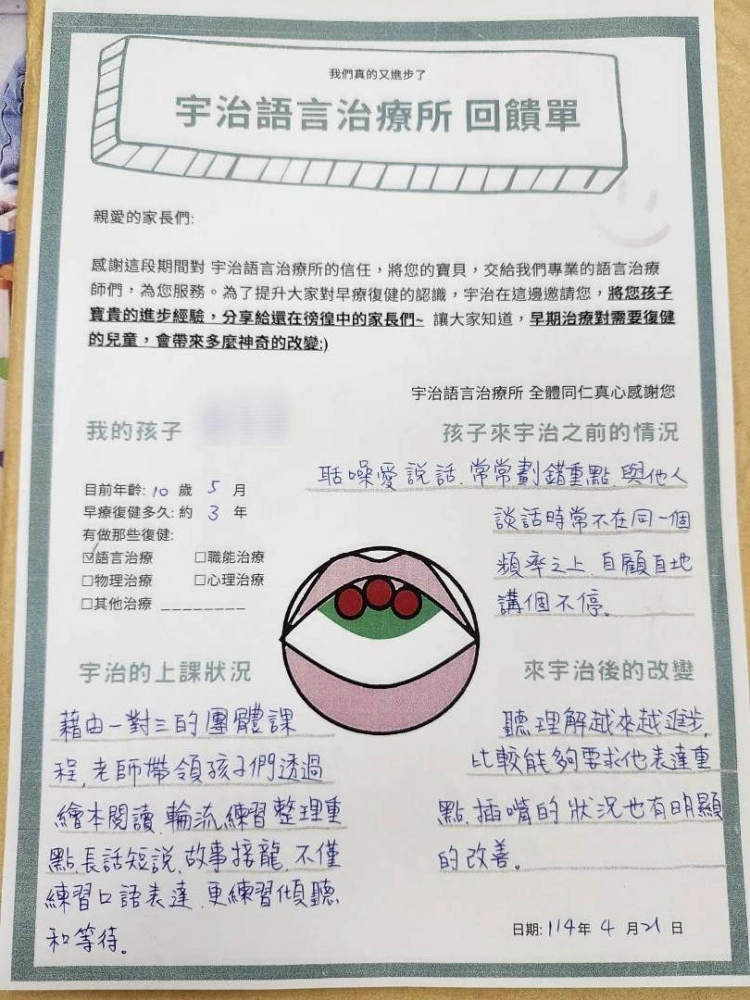 我們真的又進步了
宇治語言治療所 回饋單
親愛的家長們:
感謝這段期間對 宇治語言治療所的信任，將您的寶貝，交給我們專業的語言治療
師們，為您服務。為了提升大家對早療復健的認識，宇治在這邊邀請您，將您孩子
寶貴的進步經驗，分享給還在徬徨中的家長們~ 讓大家知道，早期治療對需要復健
的兒童，會帶來多麼神奇的改變:)
宇治語言治療所 全體同仁真心感謝您
我的孩子
目前年齡: 10 歲 5 月
早療復健多久: 約 3 年
有做那些復健:
☑語言治療 □職能治療
□物理治療 □心理治療
□其他治療 ________
孩子來宇治之前的情況
聒噪愛說話、常常劃錯重點、與他人
談話時常不在同一個
頻率之上、自顧自地
講個不停。
宇治的上課狀況
藉由一對三的團體課
程、老師帶領孩子們透過
繪本閱讀、輪流練習整理重
點、長話短說、故事接龍、不僅
練習口語表達、更練習傾聽
和等待。
來宇治後的改變
聽理解越來越進步、
比較能夠要求他表達重
點、插嘴的狀況也有明顯
的改善。
日期: 114年 4 月21 日